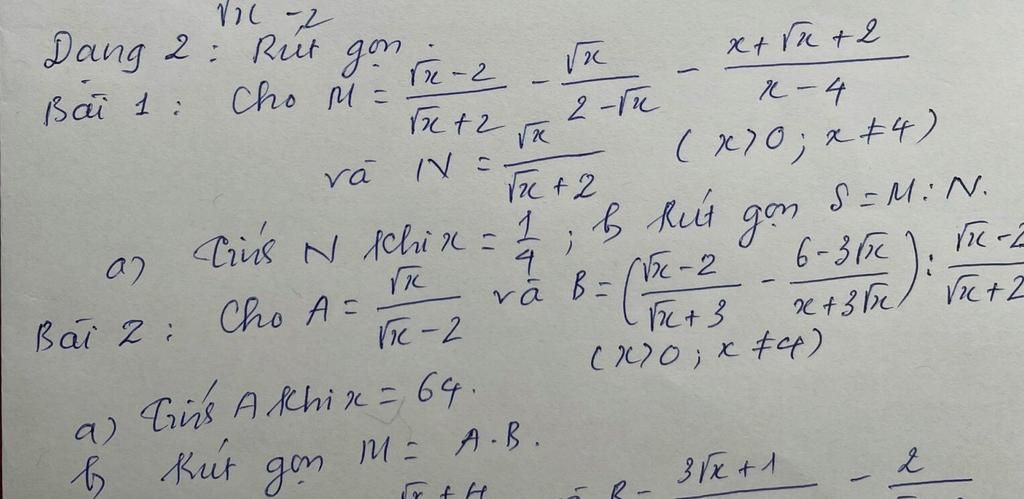 √x - 2
Dạng 2 : Rút gọn.
Bài 1 : Cho M = (√x - 2)/(√x + 2) - √x/(2 - √x) - (x + √x + 2)/(x - 4)
và N = √x/(√x + 2) ( x > 0 ; x ≠ 4 )
a) Tính N khi x = 1/4 ; b) Rút gọn S = M : N.
Bài 2 : Cho A = √x/(√x - 2) và B = ((√x - 2)/(√x + 3) - (6 - 3√x)/(x + 3√x)) : (√x - 2)/(√x + 2)
( x > 0 ; x ≠ 4 )
a) Tính A khi x = 64.
b) Rút gọn M = A.B.
3√x + 1 - 2